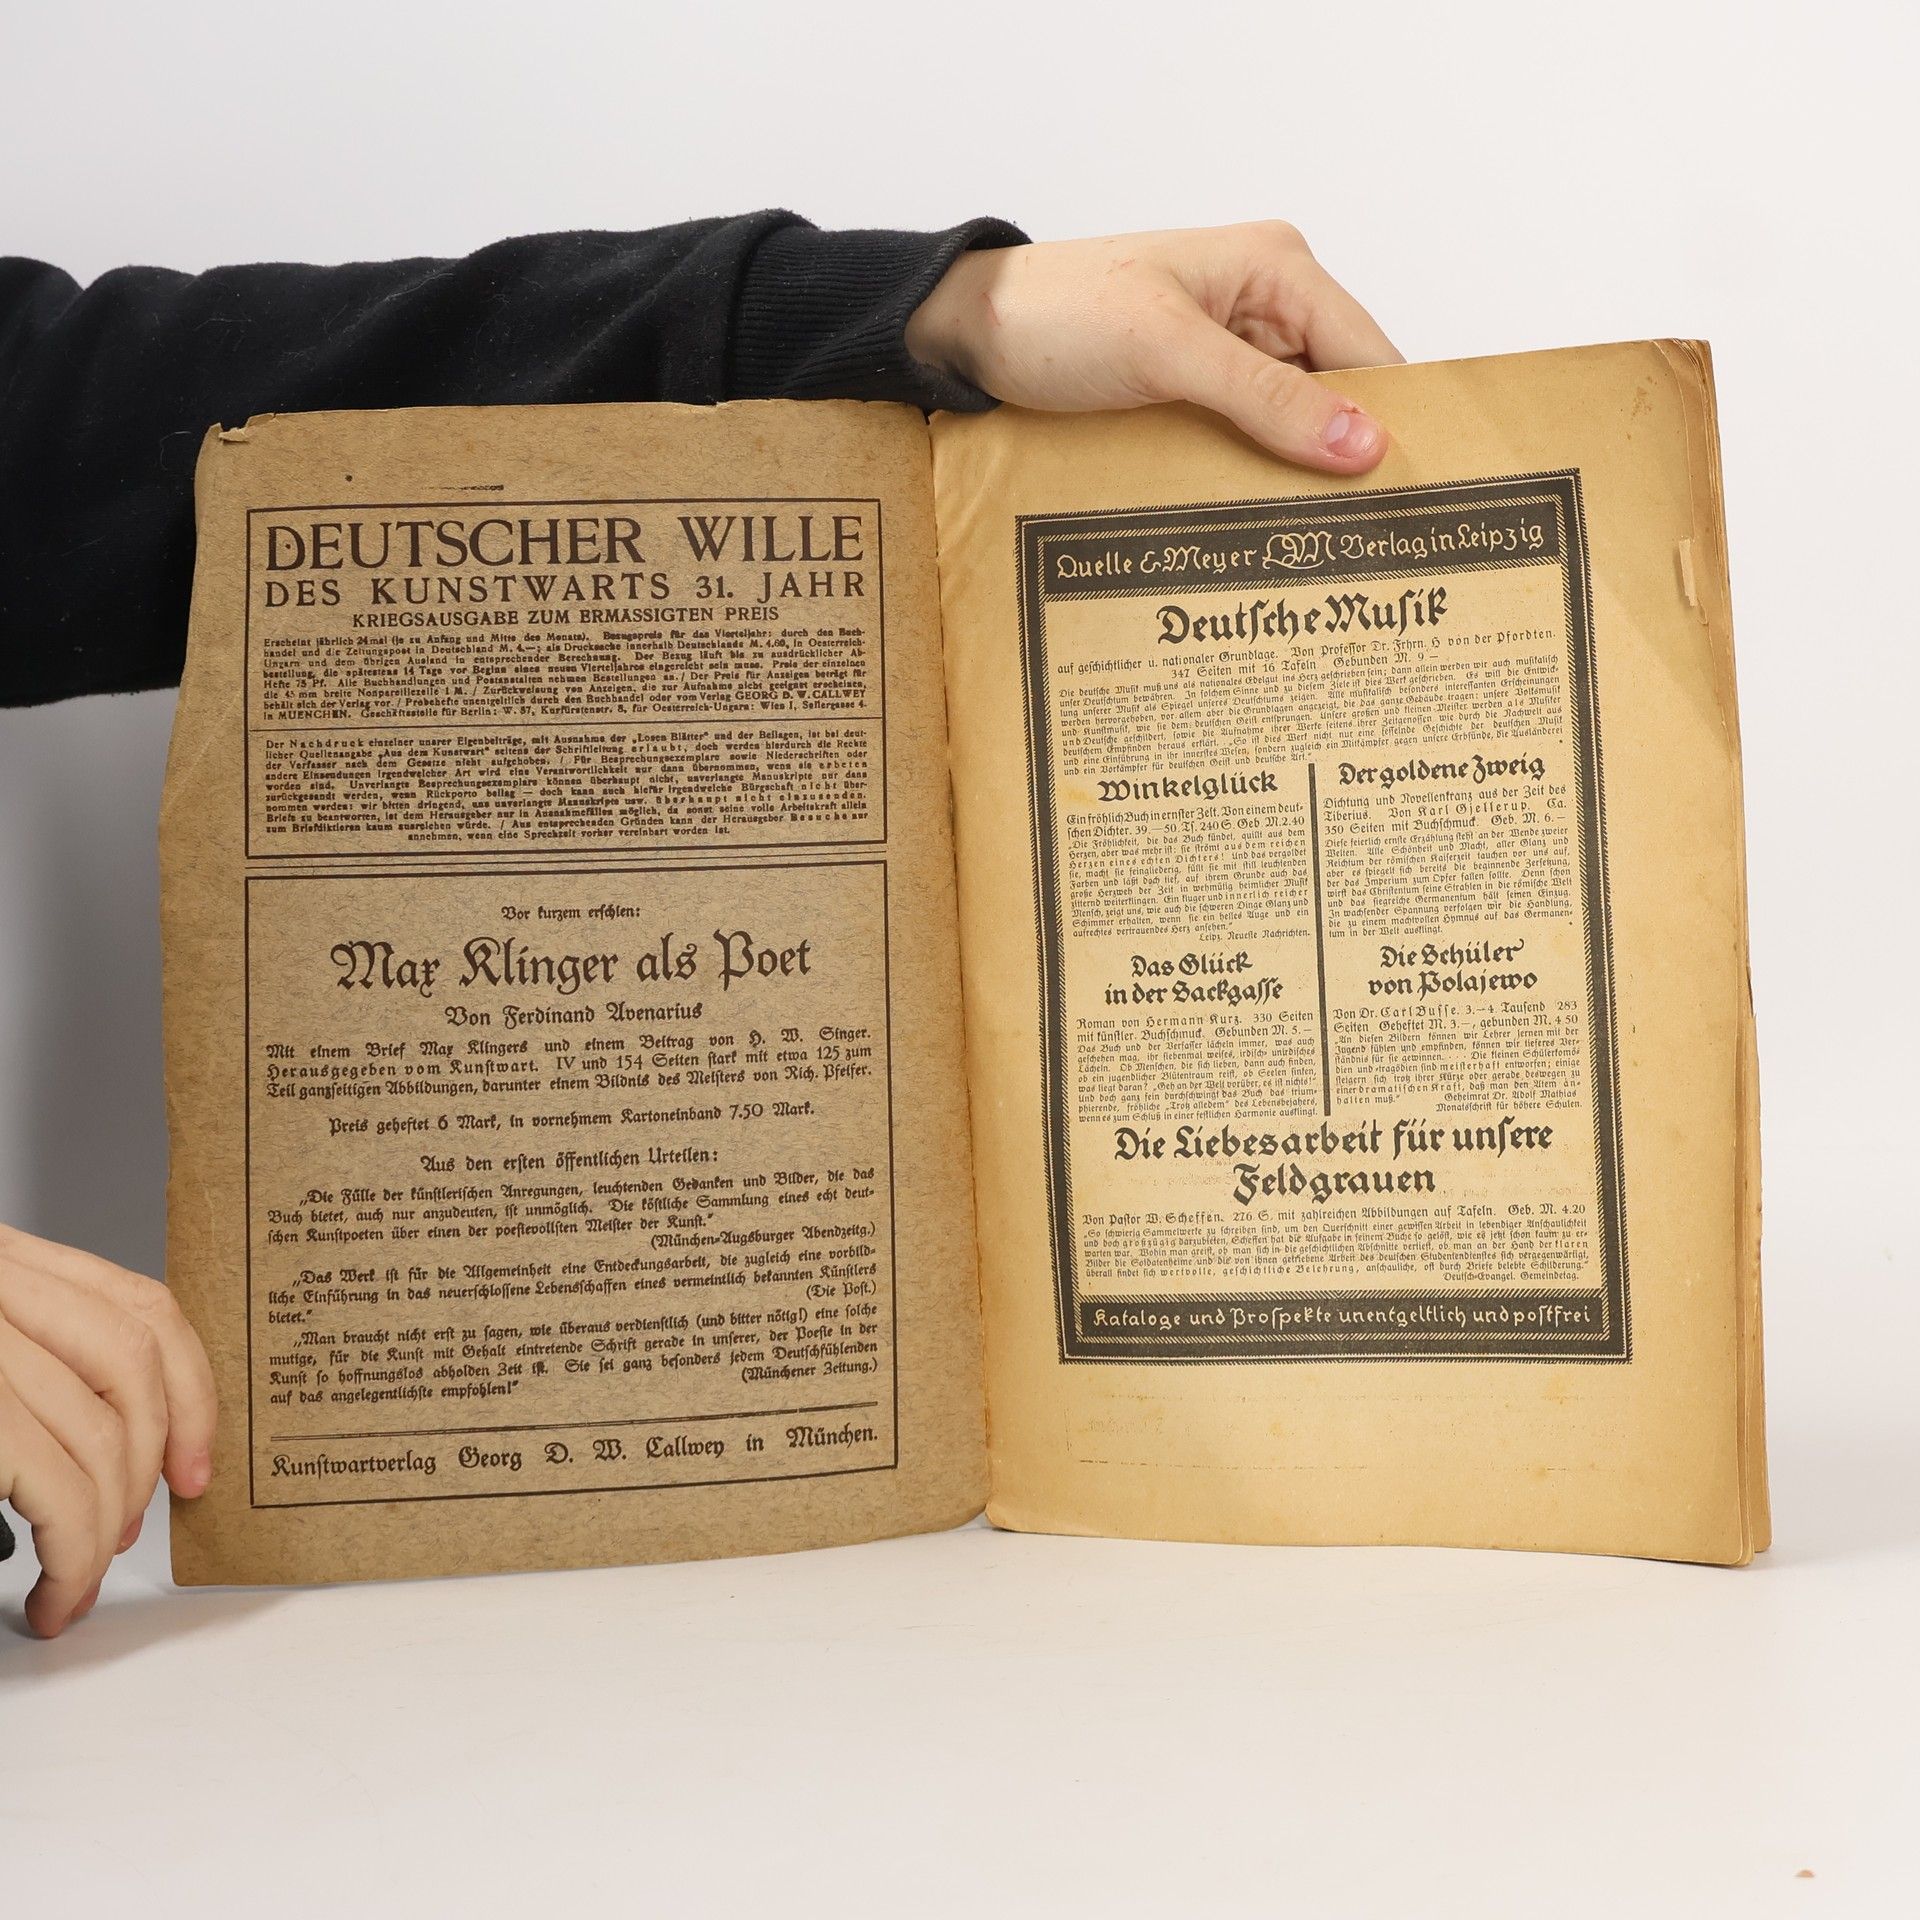 DEUTSCHER WILLE
DES KUNSTWARTS 31. JAHR
KRIEGSAUSGABE ZUM ERMÄSSIGTEN PREIS
Erscheint jährlich 24mal (je zu Anfang und Mitte des Monats). Bezugspreis für das Vierteljahr: durch den Buch-
handel und die Zeitungspost in Deutschland M. 4.—; als Drucksache innerhalb Deutschlands M. 4.60, in Oesterreich-
Ungarn und dem übrigen Ausland in entsprechender Berechnung. Der Bezug läuft bis zu ausdrücklicher Ab-
bestellung, die spätestens 14 Tage vor Beginn eines neuen Vierteljahres eingereicht sein muss. Preis der einzelnen
Hefte 75 Pf. Alle Buchhandlungen und Postanstalten nehmen Bestellungen an. / Der Preis für Anzeigen beträgt für
die 45 mm breite Nonpareillezeile 1 M. / Zurückweisung von Anzeigen, die zur Aufnahme nicht geeignet erscheinen,
behält sich der Verlag vor. / Probehefte unentgeltlich durch den Buchhandel oder vom Verlag GEORG D. W. CALLWEY
in MUENCHEN. Geschäftsstelle für Berlin: W. 57, Kurfürstenstr. 8, für Oesterreich-Ungarn: Wien I, Seilergasse 4.
Der Nachdruck einzelner unsrer Eigenbeiträge, mit Ausnahme der „Losen Blätter“ und der Beilagen, ist bei deut-
licher Quellenangabe „Aus dem Kunstwart“ seitens der Schriftleitung erlaubt, doch werden hierdurch die Rechte
der Verfasser nach dem Gesetze nicht aufgehoben. / Für Besprechungsexemplare sowie Niederschriften oder
andere Einsendungen irgendwelcher Art wird eine Verantwortlichkeit nur dann übernommen, wenn sie erbeten
worden sind. Unverlangte Besprechungsexemplare können überhaupt nicht, unverlangte Manuskripte nur dann
zurückgesandt werden, wenn Rückporto beilag — doch kann auch hiefür irgendwelche Bürgschaft nicht über-
nommen werden: wir bitten dringend, uns unverlangte Manuskripte usw. überhaupt nicht einzusenden.
Briefe zu beantworten, ist dem Herausgeber nur in Ausnahmefällen möglich, da sonst seine volle Arbeitskraft allein
zum Briefdiktieren kaum ausreichen würde. / Aus entsprechenden Gründen kann der Herausgeber Besuche nur
annehmen, wenn eine Sprechzeit vorher vereinbart worden ist.
Vor kurzem erschien:
Max Klinger als Poet
Von Ferdinand Avenarius
Mit einem Brief Max Klingers und einem Beitrag von H. W. Singer.
Herausgegeben vom Kunstwart. IV und 154 Seiten stark mit etwa 125 zum
Teil ganzseitigen Abbildungen, darunter einem Bildnis des Meisters von Rich. Pfeifer.
Preis geheftet 6 Mark, in vornehmem Kartoneinband 7.50 Mark.
Aus den ersten öffentlichen Urteilen:
„Die Fülle der künstlerischen Anregungen, leuchtenden Gedanken und Bilder, die das
Buch bietet, auch nur anzudeuten, ist unmöglich. Die köstliche Sammlung eines echt deut-
schen Kunstpoeten über einen der poesievollsten Meister der Kunst.“
(München-Augsburger Abendzeitg.)
„Das Werk ist für die Allgemeinheit eine Entdeckungsarbeit, die zugleich eine vorbild-
liche Einführung in das neuerschlossene Lebensschaffen eines vermeintlich bekannten Künstlers
bietet.“ (Die Post.)
„Man braucht nicht erst zu sagen, wie überaus verdienstlich (und bitter nötig!) eine solche
mutige, für die Kunst mit Gehalt eintretende Schrift gerade in unserer, der Poesie in der
Kunst so hoffnungslos abholden Zeit ist. Sie sei ganz besonders jedem Deutschfühlenden
auf das angelegentlichste empfohlen!“ (Münchener Zeitung.)
Kunstwartverlag Georg D. W. Callwey in München.
Quelle & Meyer QM Verlag in Leipzig
Deutsche Musik
auf geschichtlicher u. nationaler Grundlage. Von Professor Dr. Frhrn. H von der Pfordten.
347 Seiten mit 16 Tafeln Gebunden M. 9 —
Die deutsche Musik muß uns als nationales Edelgut ins Herz geschrieben sein; dann allein werden wir auch musikalisch
unser Deutschtum bewähren. In solchem Sinne und zu diesem Ziele ist dies Werk geschrieben. Es will die Entwick-
lung unserer Musik als Spiegel unseres Deutschtums zeigen. Alle musikalisch besonders interessanten Erscheinungen
werden hervorgehoben, vor allem aber die Grundlagen angezeigt, die das ganze Gebäude tragen: unsere Volksmusik
und Kunstmusik, wie sie dem deutschen Geist entsprungen. Unsere großen und kleinen Meister werden als Musiker
und Deutsche geschildert, sowie die Aufnahme ihrer Werke seitens ihrer Zeitgenossen wie durch die Nachwelt aus
deutschem Empfinden heraus erklärt. „So ist dies Werk nicht nur eine fesselnde Geschichte der deutschen Musik
und eine Einführung in ihr innerstes Wesen, sondern zugleich ein Mitkämpfer gegen unsere Erbsünde, die Ausländerei
und ein Vorkämpfer für deutschen Geist und deutsche Art.“
Winkelglück
Ein fröhlich Buch in ernster Zeit. Von einem deut-
schen Dichter. 39.—50. Ts. 240 S. Geb. M. 2.40
„Die Fröhlichkeit, die das Buch kündet, quillt aus dem
Herzen, aber was mehr ist: sie strömt aus dem reichen
Herzen eines echten Dichters! Und das vergoldet
sie, macht sie feingliederig, füllt sie mit still leuchtenden
Farben und läßt doch tief, auf ihrem Grunde auch das
große Herzweh der Zeit in wehmütig heimlicher Musik
zitternd weiterklingen. Ein kluger und innerlich reicher
Mensch, zeigt uns, wie auch die schweren Dinge Glanz und
Schimmer erhalten, wenn sie ein helles Auge und ein
aufrechtes vertrauendes Herz ansehen.“
Leipz. Neueste Nachrichten.
Das Glück
in der Sackgasse
Roman von Hermann Kurz. 330 Seiten
mit künstler. Buchschmuck. Gebunden M. 5.—
Das Buch und der Verfasser lächeln immer, was auch
geschehen mag, ihr siebenmal weises, irdisch unirdisches
Lächeln. Ob Menschen, die sich lieben, dann auch finden,
ob ein jugendlicher Blütentraum reift, ob Seelen sinken,
was liegt daran? „Geh an der Welt vorüber, es ist nichts!“
Und doch ganz fein durchschwingt das Buch das trium-
phierende, fröhliche „Trotz alledem“ des Lebensbejahers,
wenn es zum Schluß in einer festlichen Harmonie ausklingt.
Der goldene Zweig
Dichtung und Novellenkranz aus der Zeit des
Tiberius. Von Karl Gjellerup. Ca.
350 Seiten mit Buchschmuck. Geb. M. 6.—
Diese feierlich ernste Erzählung steht an der Wende zweier
Welten. Alle Schönheit und Macht, aller Glanz und
Reichtum der römischen Kaiserzeit tauchen vor uns auf,
aber es spiegelt sich bereits die beginnende Zersetzung,
der das Imperium zum Opfer fallen sollte. Denn schon
wirft das Christentum seine Strahlen in die römische Welt
und das siegreiche Germanentum hält seinen Einzug.
In wachsender Spannung verfolgen wir die Handlung,
die zu einem machtvollen Hymnus auf das Germanen-
tum in der Welt ausklingt.
Die Schüler
von Polajewo
Von Dr. Carl Busse. 3.—4. Tausend 283
Seiten Geheftet M. 3.—, gebunden M. 4 50
„An diesen Bildern können wir Lehrer lernen mit der
Jugend fühlen und empfinden, können wir tieferes Ver-
ständnis für sie gewinnen. . . . Die kleinen Schülerkomö-
dien und -tragödien sind meisterhaft entworfen; einige
steigern sich trotz ihrer Kürze oder gerade deswegen zu
einer dramatischen Kraft, daß man den Atem an-
halten muß.“ Geheimrat Dr. Adolf Mathias
Monatsschrift für höhere Schulen.
Die Liebesarbeit für unsere
Feldgrauen
Von Pastor W. Scheffen. 276 S. mit zahlreichen Abbildungen auf Tafeln. Geb. M. 4.20
„So schwierig Sammelwerke zu schreiben sind, um den Querschnitt einer gewissen Arbeit in lebendiger Anschaulichkeit
und doch großzügig darzubieten, Scheffen hat die Aufgabe in seinem Buche so gelöst, wie es jetzt schon kaum zu er-
warten war. Wohin man greift, ob man sich in die geschichtlichen Abschnitte vertieft, ob man an der Hand der klaren
Bilder die Soldatenheime und die von ihnen getriebene Arbeit des deutschen Studentendienstes sich vergegenwärtigt,
überall findet sich wertvolle, geschichtliche Belehrung, anschauliche, oft durch Briefe belebte Schilderung.“
Deutsch-Evangel. Gemeindetag.
Kataloge und Prospekte unentgeltlich und postfrei